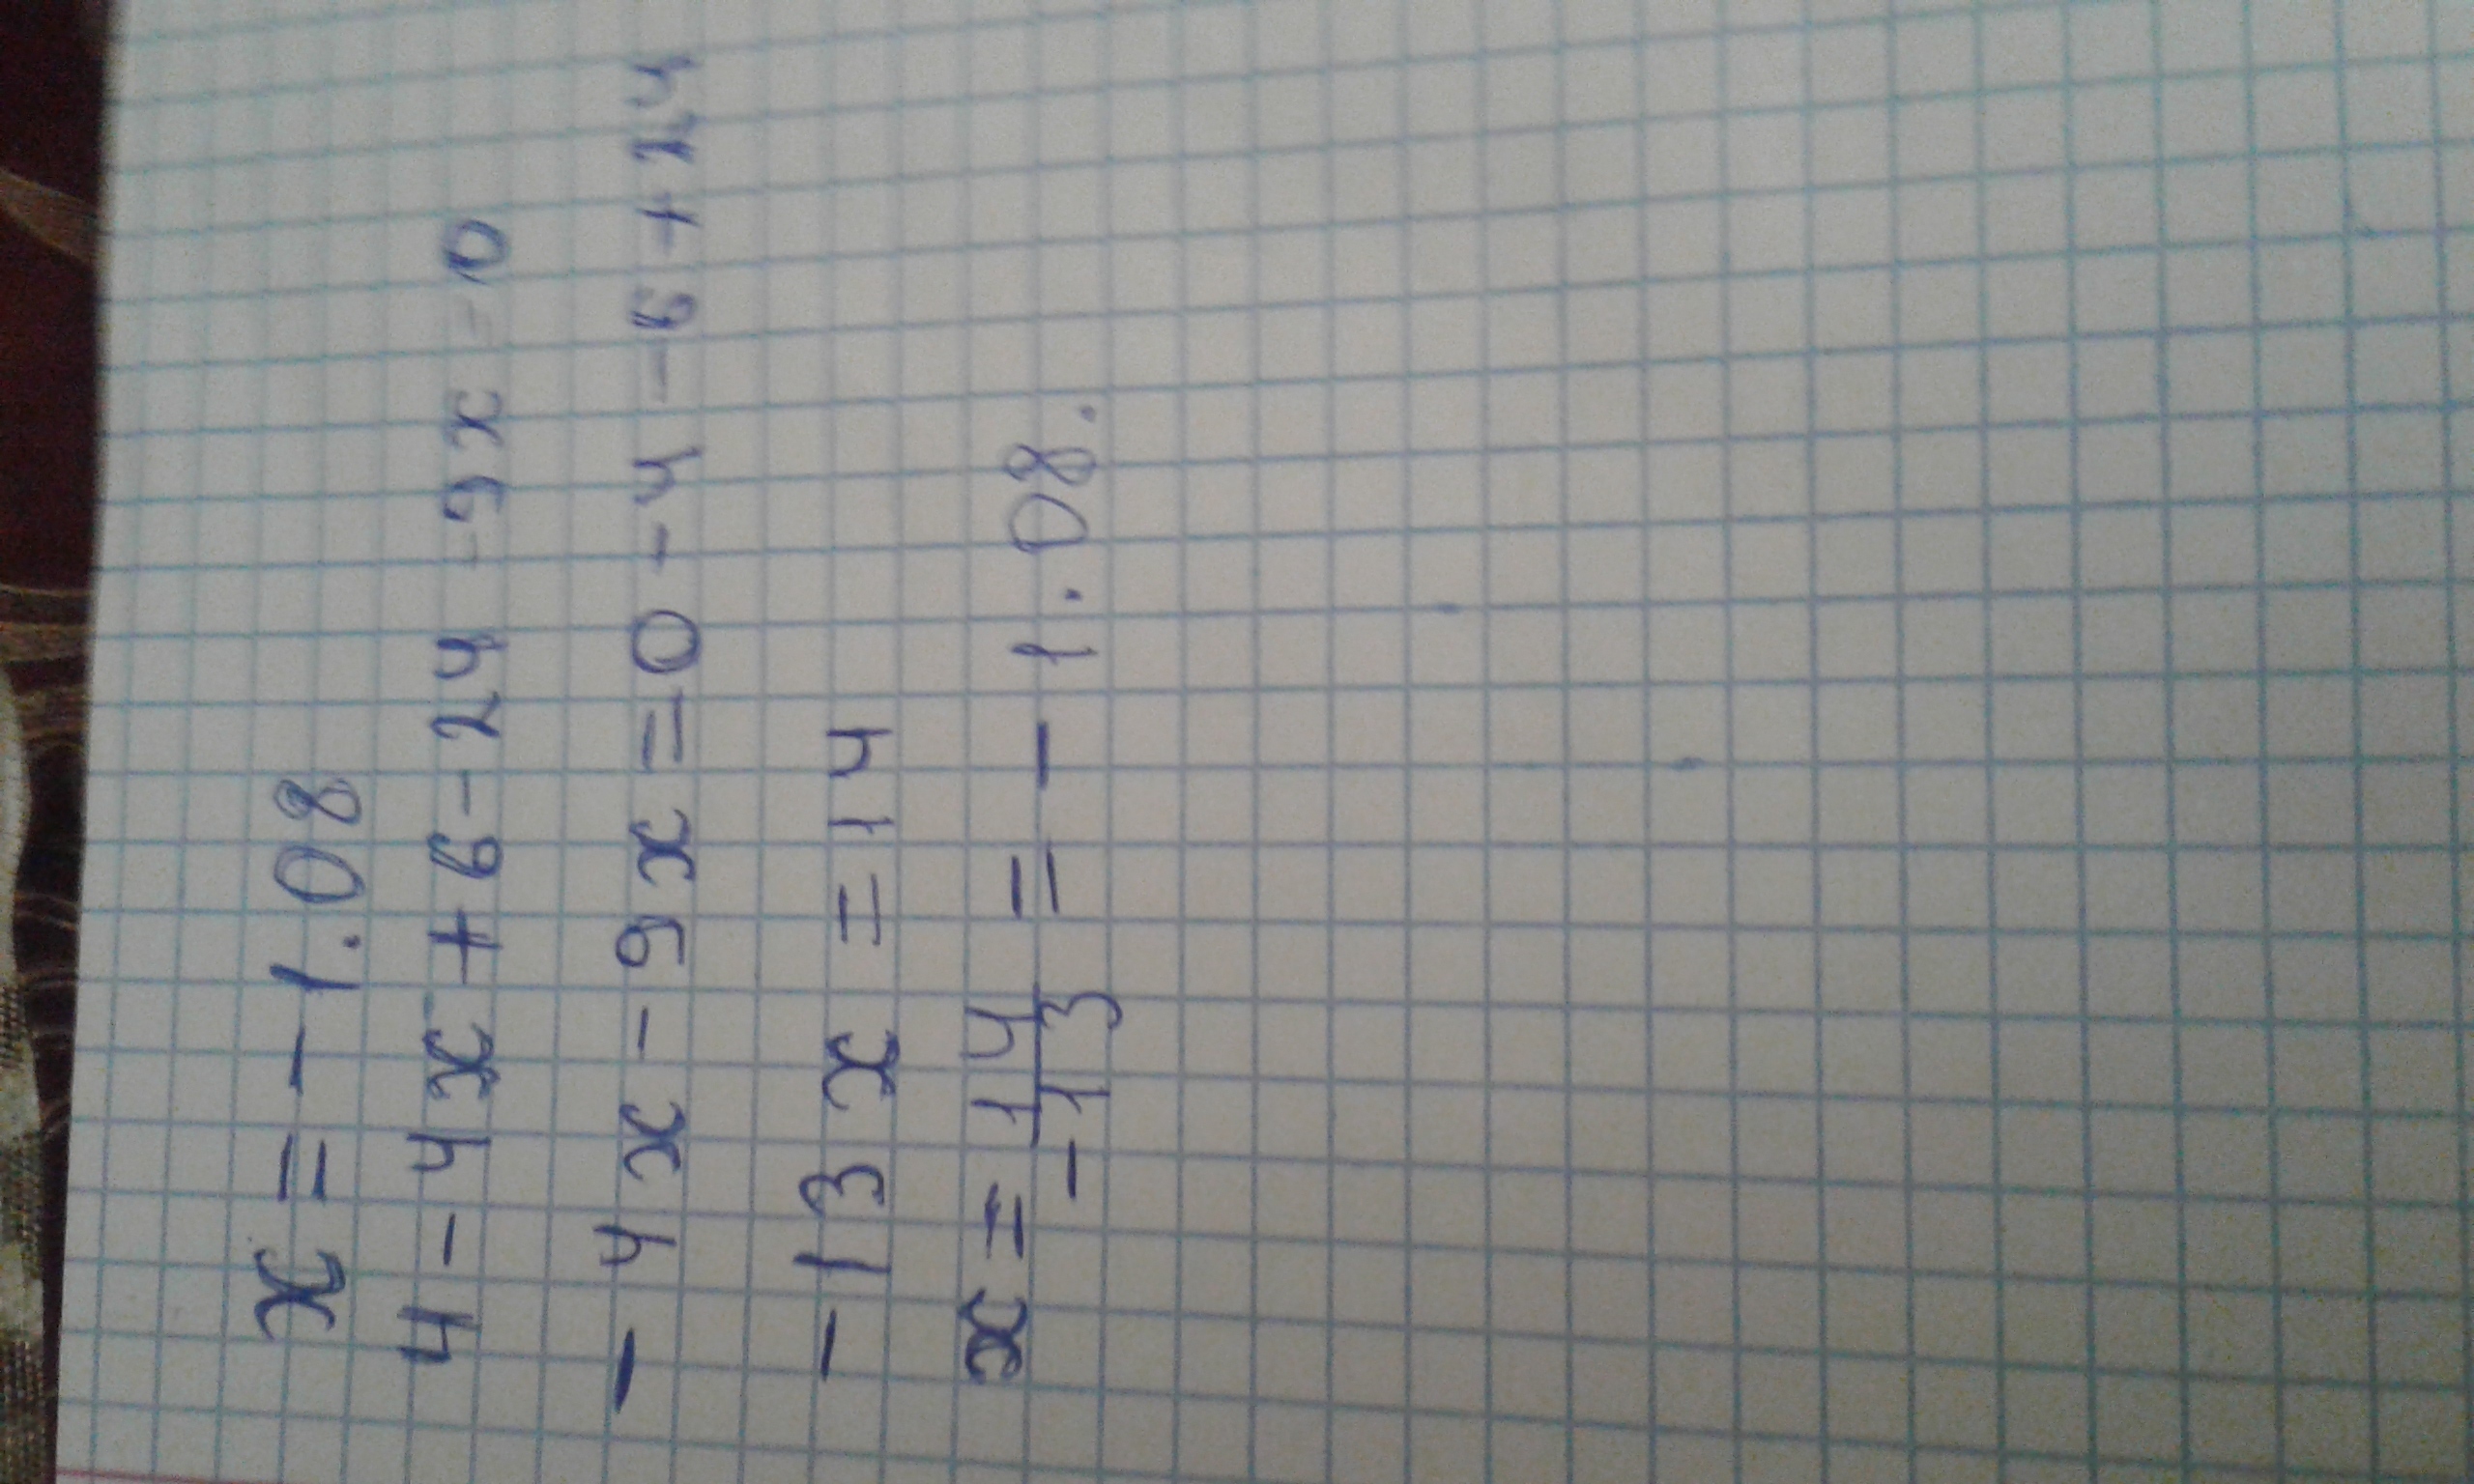 x = - 1.08
4 - 4x + 6 - 24 - 9x = 0
- 4x - 9x = 0 - 4 - 6 + 24
- 13x = 14
x = 14/-13 = - 1.08.